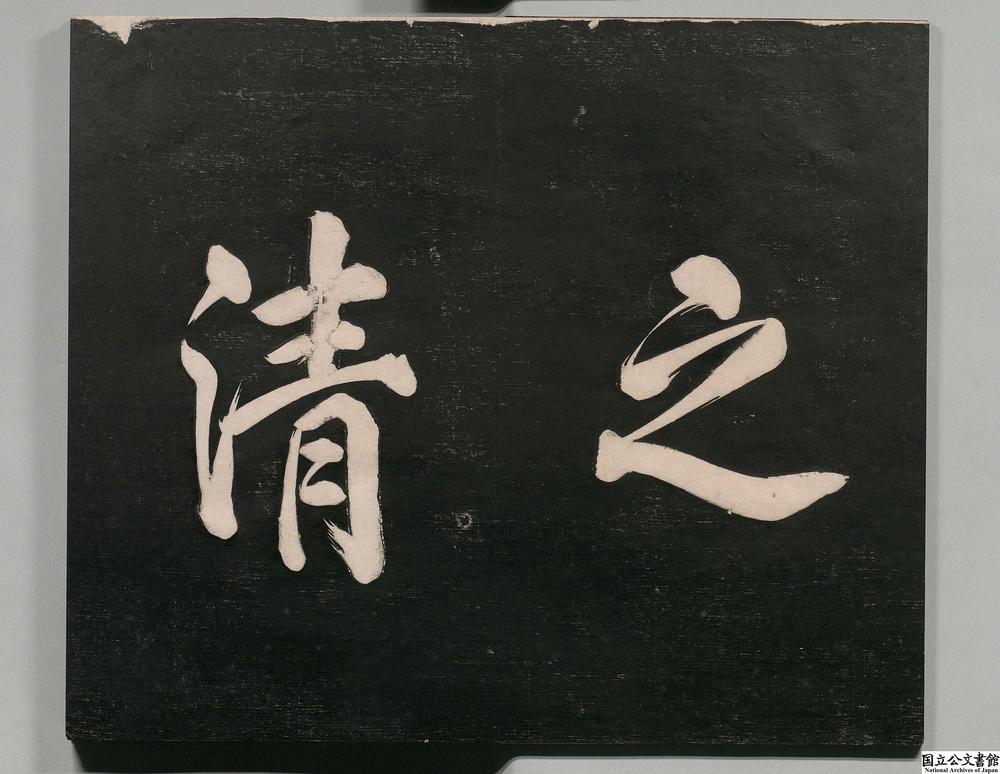 之
清
国立公文書館
National Archives of Japan